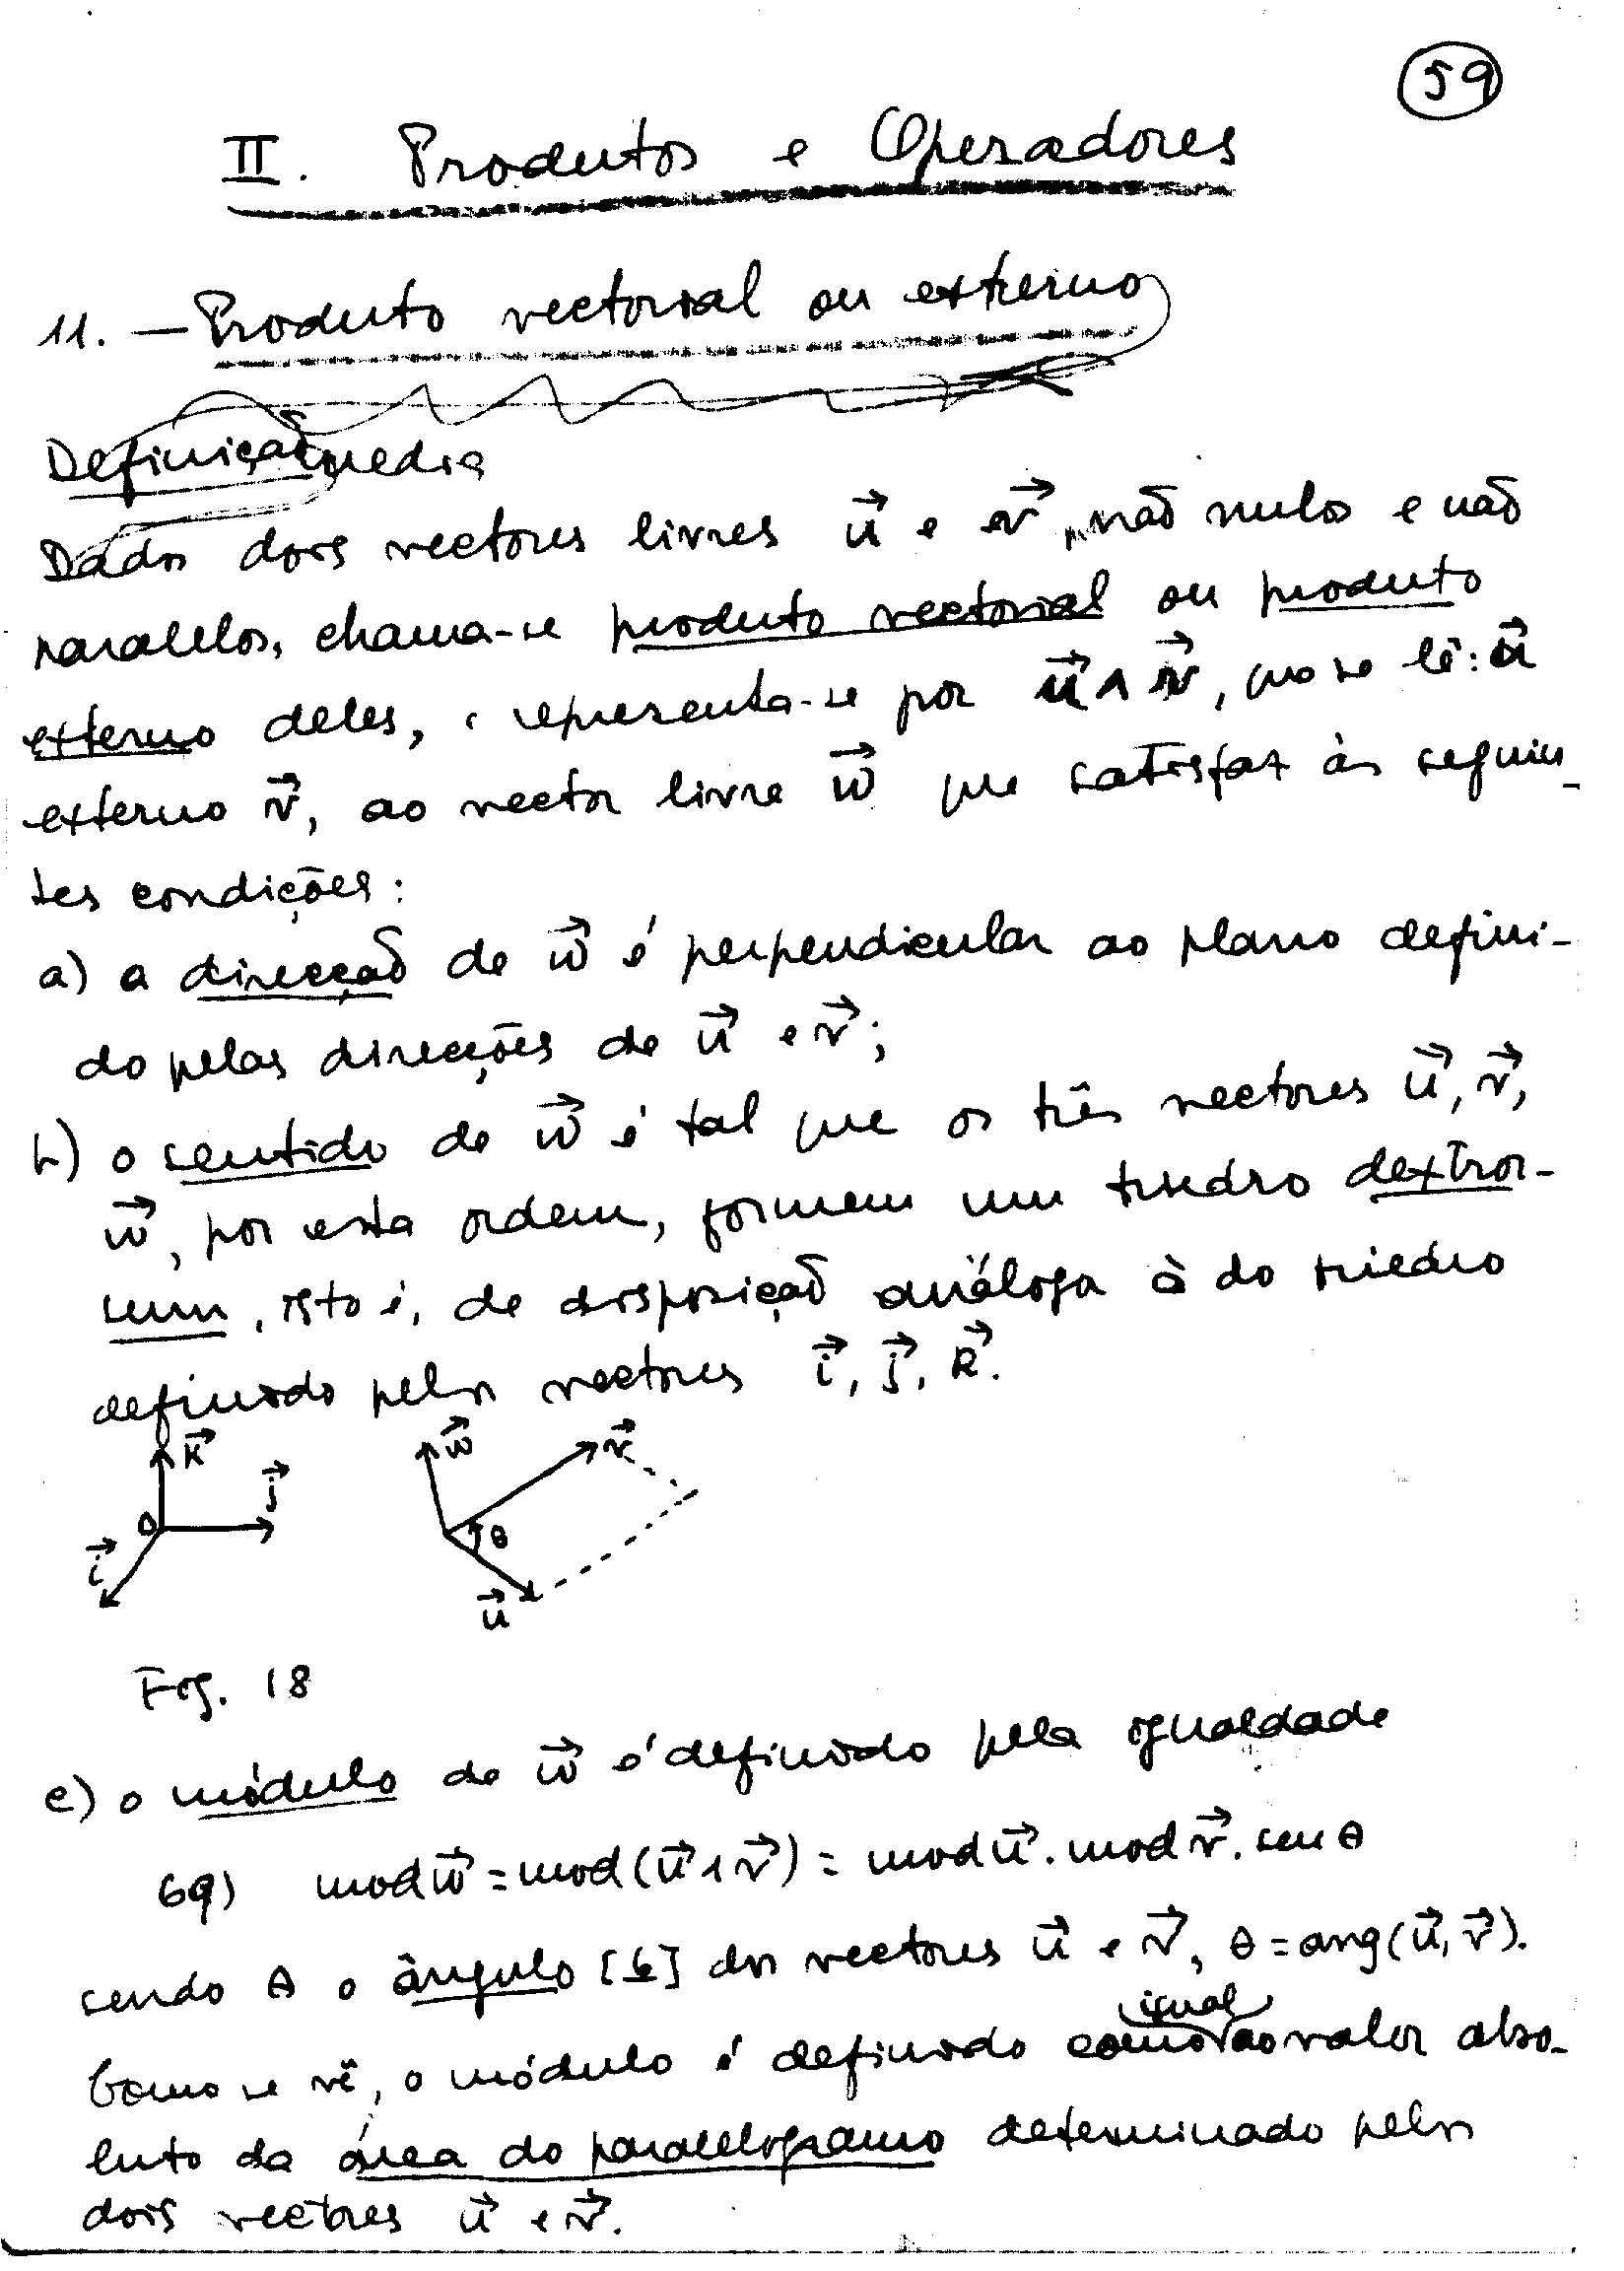 59
II. Produtos e Operadores
11. — Produto vectorial ou externo
Definição
Dados dois vectores livres u⃗ e v⃗, não nulos e não
paralelos, chama-se produto vectorial ou produto
externo deles, e representa-se por u⃗ ∧ v⃗, que se lê: u⃗
externo v⃗, ao vector livre w⃗ que satisfaz às seguin-
tes condições:
a) a direcção de w⃗ é perpendicular ao plano defini-
do pelas direcções de u⃗ e v⃗;
b) o sentido de w⃗ é tal que os três vectores u⃗, v⃗,
w⃗, por esta ordem, formem um triedro dextror-
sum, isto é, de disposição análoga à do triedro
definido pelos vectores i⃗, j⃗, k⃗.
k⃗ j⃗ O i⃗
w⃗ v⃗ θ u⃗
Fig. 18
c) o módulo de w⃗ é definido pela igualdade
69) mod w⃗ = mod (u⃗ ∧ v⃗) = mod u⃗ . mod v⃗ . sen θ
sendo θ o ângulo [6] dos vectores u⃗ e v⃗, θ = ang(u⃗, v⃗).
igual
Como se vê, o módulo é definido como ao valor abso-
luto da área do paralelogramo determinado pelos
dois vectores u⃗ e v⃗.